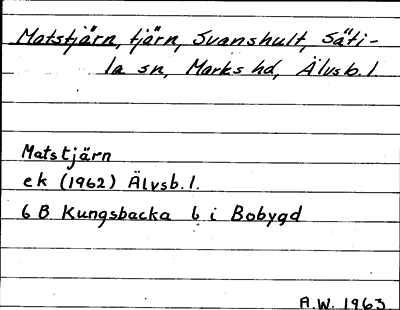 Matstjärn, tjärn, Svanshult, Säti-
la sn, Marks hd, Älvsb. l
Matstjärn
ek (1962) Älvsb. l.
6 B Kungsbacka b i Bobygd
A.W. 1963